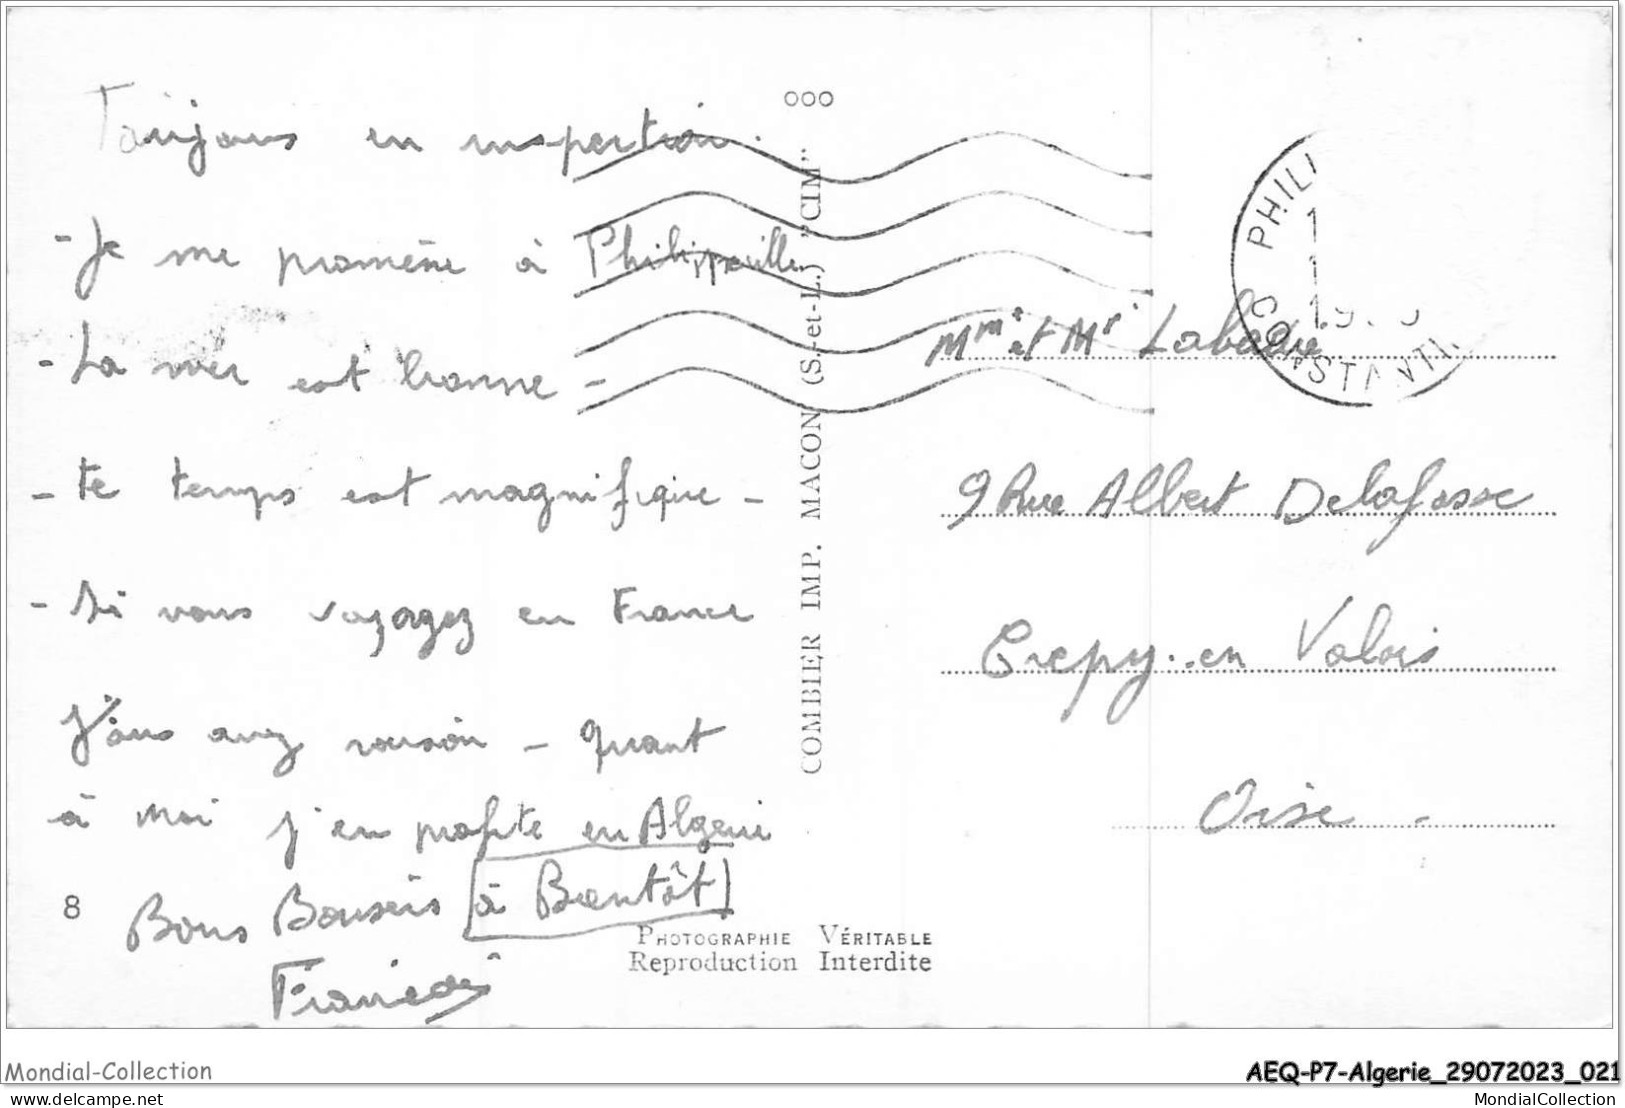 Toujours en inspection.
- Je me promène à Philippeville
- La mer est bonne -
- Le temps est magnifique -
- Si vous voyagez en France
Vous avez raison - quant
à moi j'en profite en Algérie
Bons Baisers à Bientôt
8
ooo
COMBIER IMP. MACON (S.-et-L.) "CIM"
PHOTOGRAPHIE VÉRITABLE
Reproduction Interdite
PHILI
CONSTANTI
Mme et Mr
9 Rue Albert Delafosse
Crepy-en Valois
Oise -
Mondial-Collection
AEQ-P7-Algerie_29072023_021
delcampe.net
MondialCollection